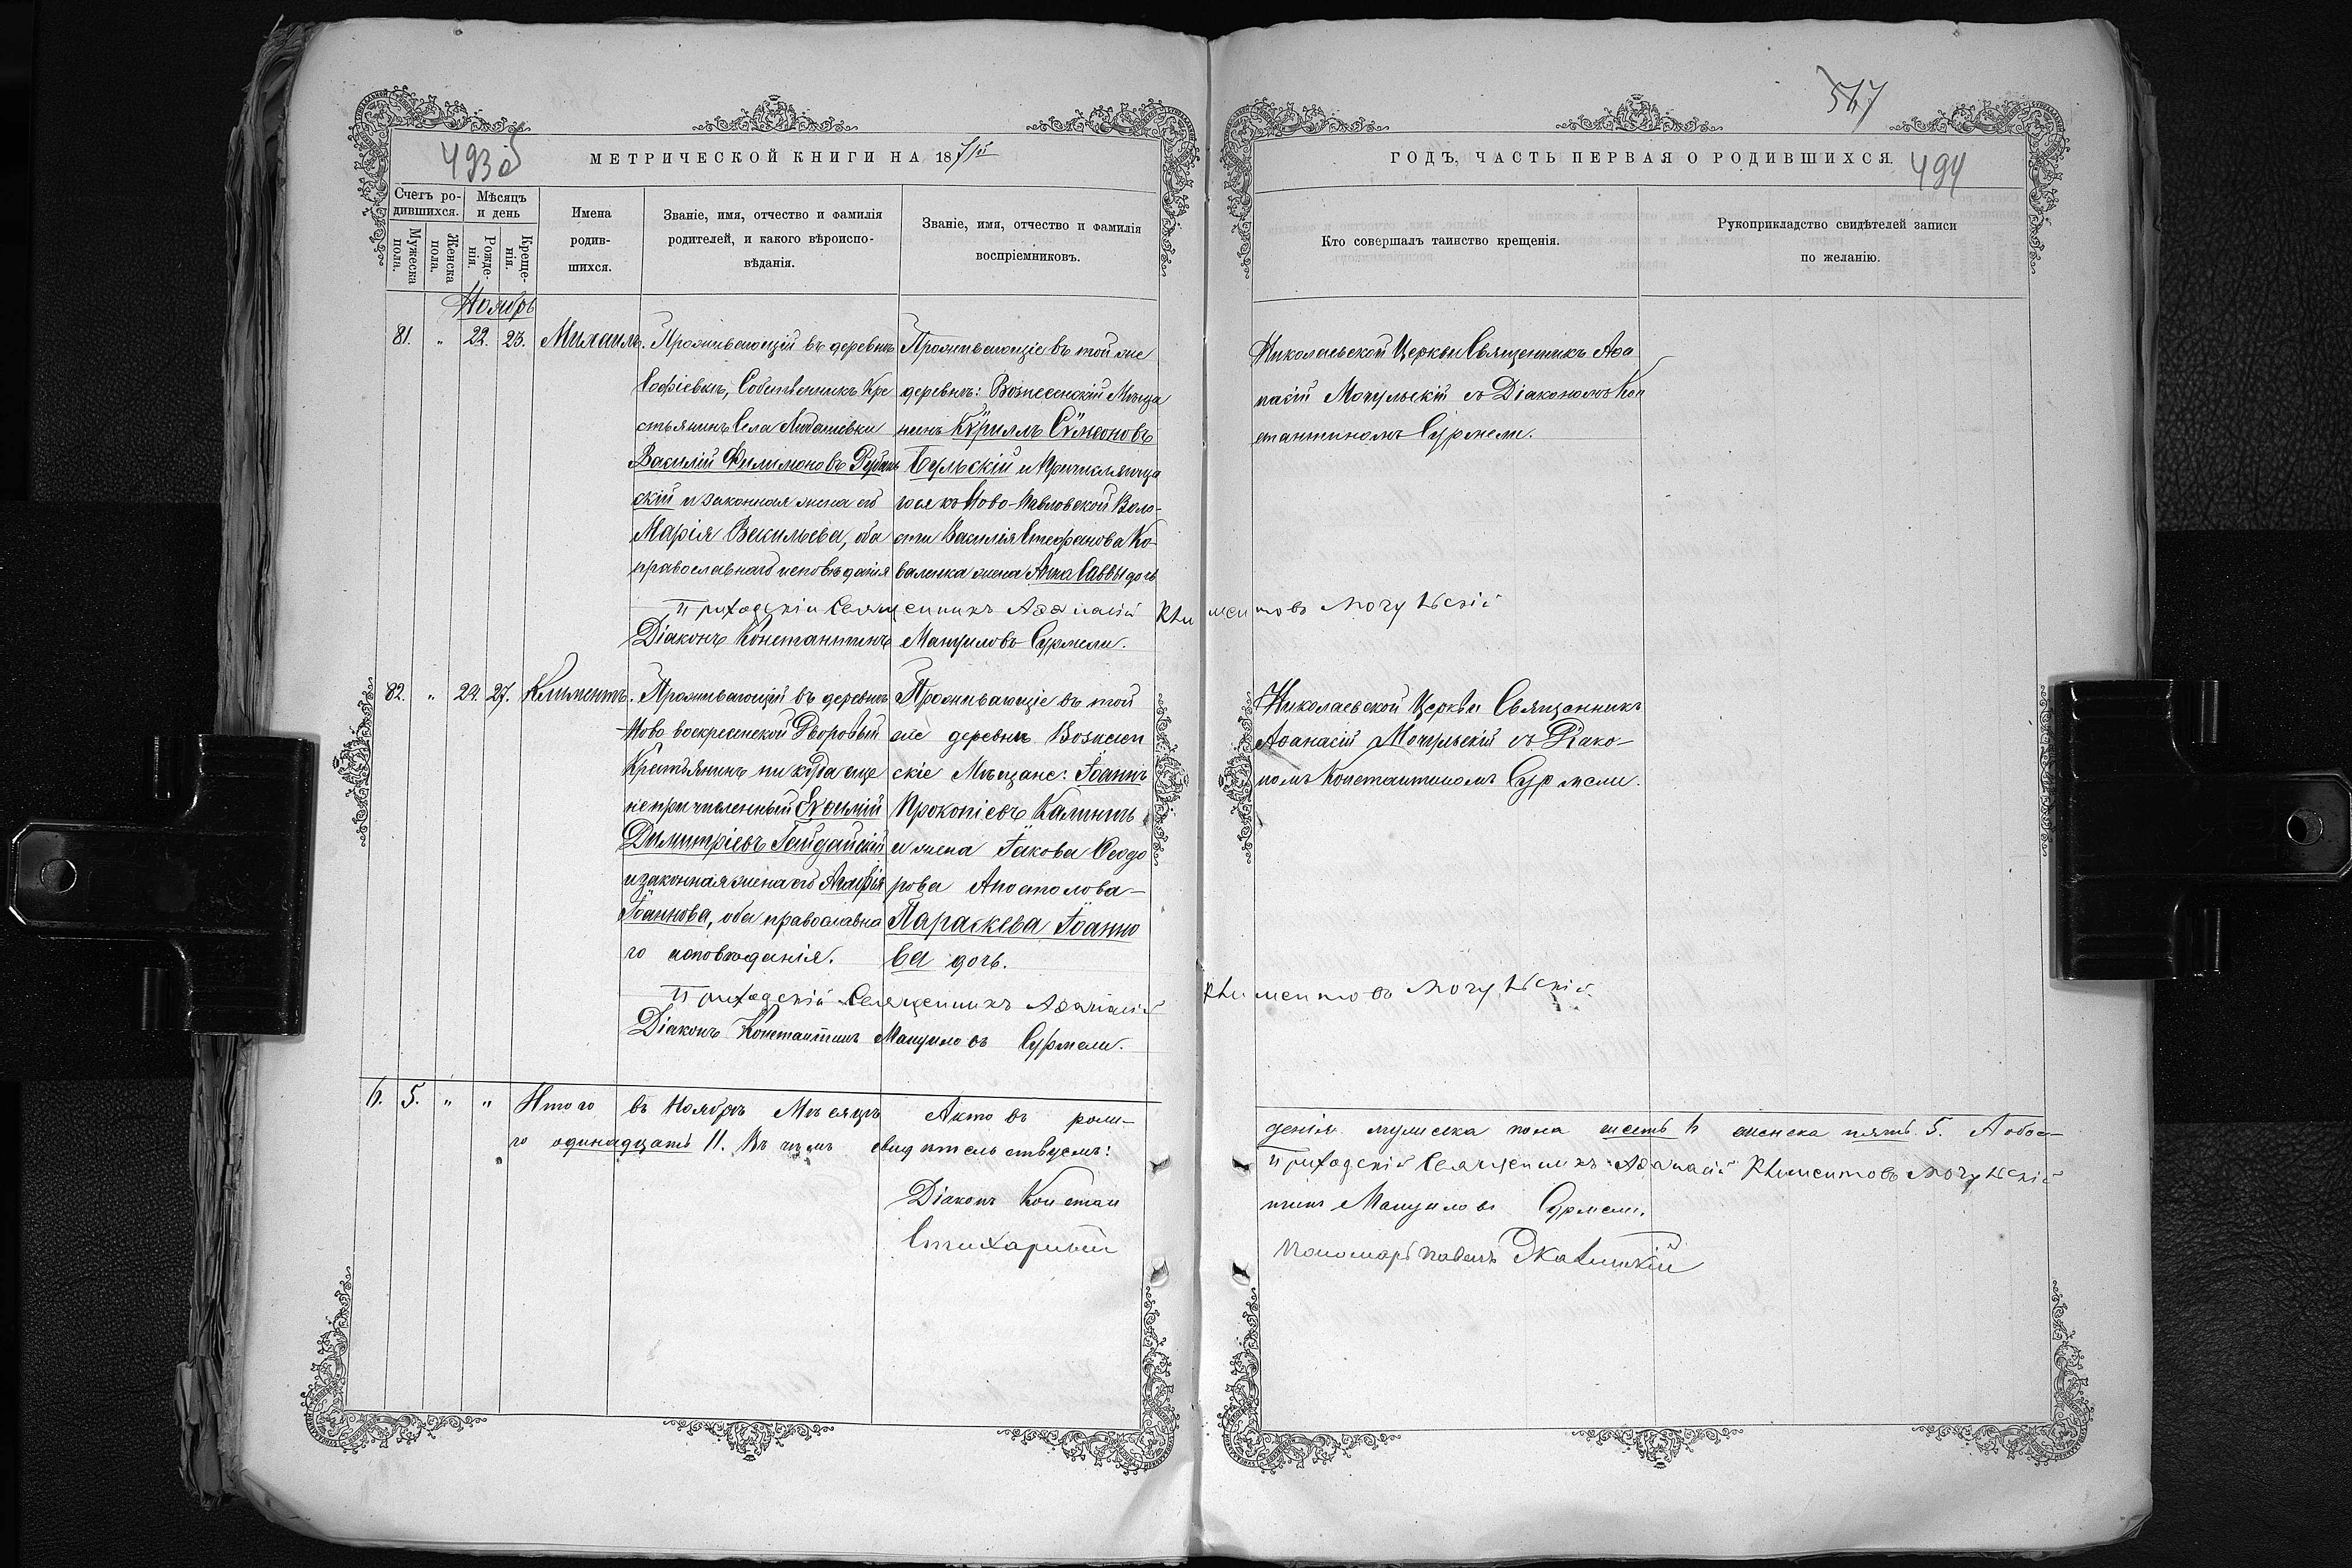 493 об
МЕТРИЧЕСКОЙ КНИГИ НА 187
Счетъ ро-
дившихся.
Мѣсяцъ
и день
Мужеска
пола.
Женска
пола.
Рожде-
нія.
Креще-
нія.
Имена
родив-
шихся.
Званіе, имя, отчество и фамилія
родителей, и какого вѣроиспо-
вѣданія.
Званіе, имя, отчество и фамилія
воспріемниковъ.
Ноябрь
81. " 22. 23. Михаилъ.
Проживающій въ деревнѣ
Софіевкѣ, Собственникъ Кре
стьянинъ Села Любашевки
Василій Филимоновъ
скій и законная жена его
Марія Васильева, оба
православнаго исповѣданія
Проживающіе въ той же
деревнѣ: Вознесенскій Мѣща
нинъ Кѵриллъ Сѵмеоновъ
Бульскій и Причисляюща
гося къ Ново-Павловской Воло-
сти Василія Стефанова Ко-
валенка жена Анна Саввы дочь
Приходскій Священникъ Аѳанасій Климентовъ Мочульскій
Діаконъ Константинъ Мануиловъ Сурмели.
82. " 24. 27. Климентъ.
Проживающій въ деревнѣ
Ново воскресенской Дворовый
Крестьянинъ ни куда еще
не причисленный Еѵѳимій
Димитріевъ Гайдайскій
и законная жена его Агафія
Іоаннова, оба православна
го исповѣданія.
Проживающіе въ той
же деревнѣ Вознесен
скіе Мѣщане: Іоаннъ
Прокопіевъ Калининъ
и жена Іакова Ѳеодо
рова Апостолова-
Параскева Іоанно
ва дочь.
Приходскій Священникъ Аѳанасій Климентовъ Мочульскій
Діаконъ Константинъ Мануиловъ Сурмели.
6. 5. " " Итого въ Ноябрѣ Мѣсяцѣ Актовъ рож-
го одинадцать 11. Въ чемъ свидѣтельствуемъ:
Діаконъ Констан
Стихарный
567
ГОДЪ, ЧАСТЬ ПЕРВАЯ О РОДИВШИХСЯ.
494
Кто совершалъ таинство крещенія.
Рукоприкладство свидѣтелей записи
по желанію.
Николаевской Церкви Священникъ Аѳа
насій Мочульскій съ Діакономъ Кон
стантиномъ Сурмели.
Николаевской Церкви Священникъ
Аѳанасій Мочульскій съ Діако-
номъ Константиномъ Сурмели.
денія мужеска пола шесть 6 женска пять 5. А обое-
Приходскій Священникъ Аѳанасій Климентовъ Мочульскій
тинъ Мануиловъ Сурмели.
Пономарь Павелъ